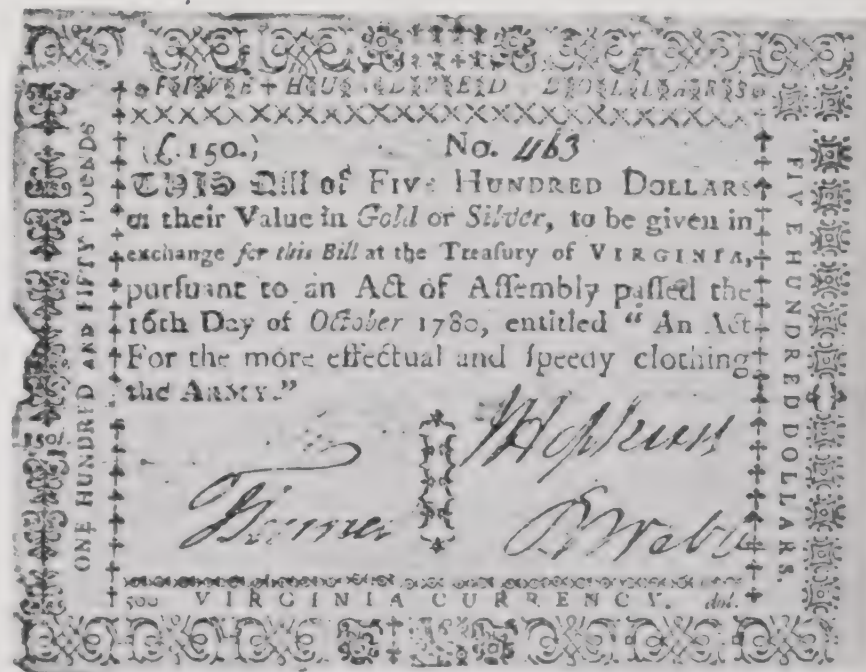 FIVE HUNDRED DOLLARS
(£.150.) No. 463
THIS Bill of FIVE HUNDRED DOLLARS
or their Value in Gold or Silver, to be given in
exchange for this Bill at the Treasury of VIRGINIA,
purſuant to an Act of Aſſembly paſſed the
16th Day of October 1780, entitled “ An Act
For the more effectual and ſpeedy clothing
the ARMY.”
J Hopkins
B Webb
500 VIRGINIA CURRENCY. dol.
ONE HUNDRED AND FIFTY POUNDS
150l.
FIVE HUNDRED DOLLARS.